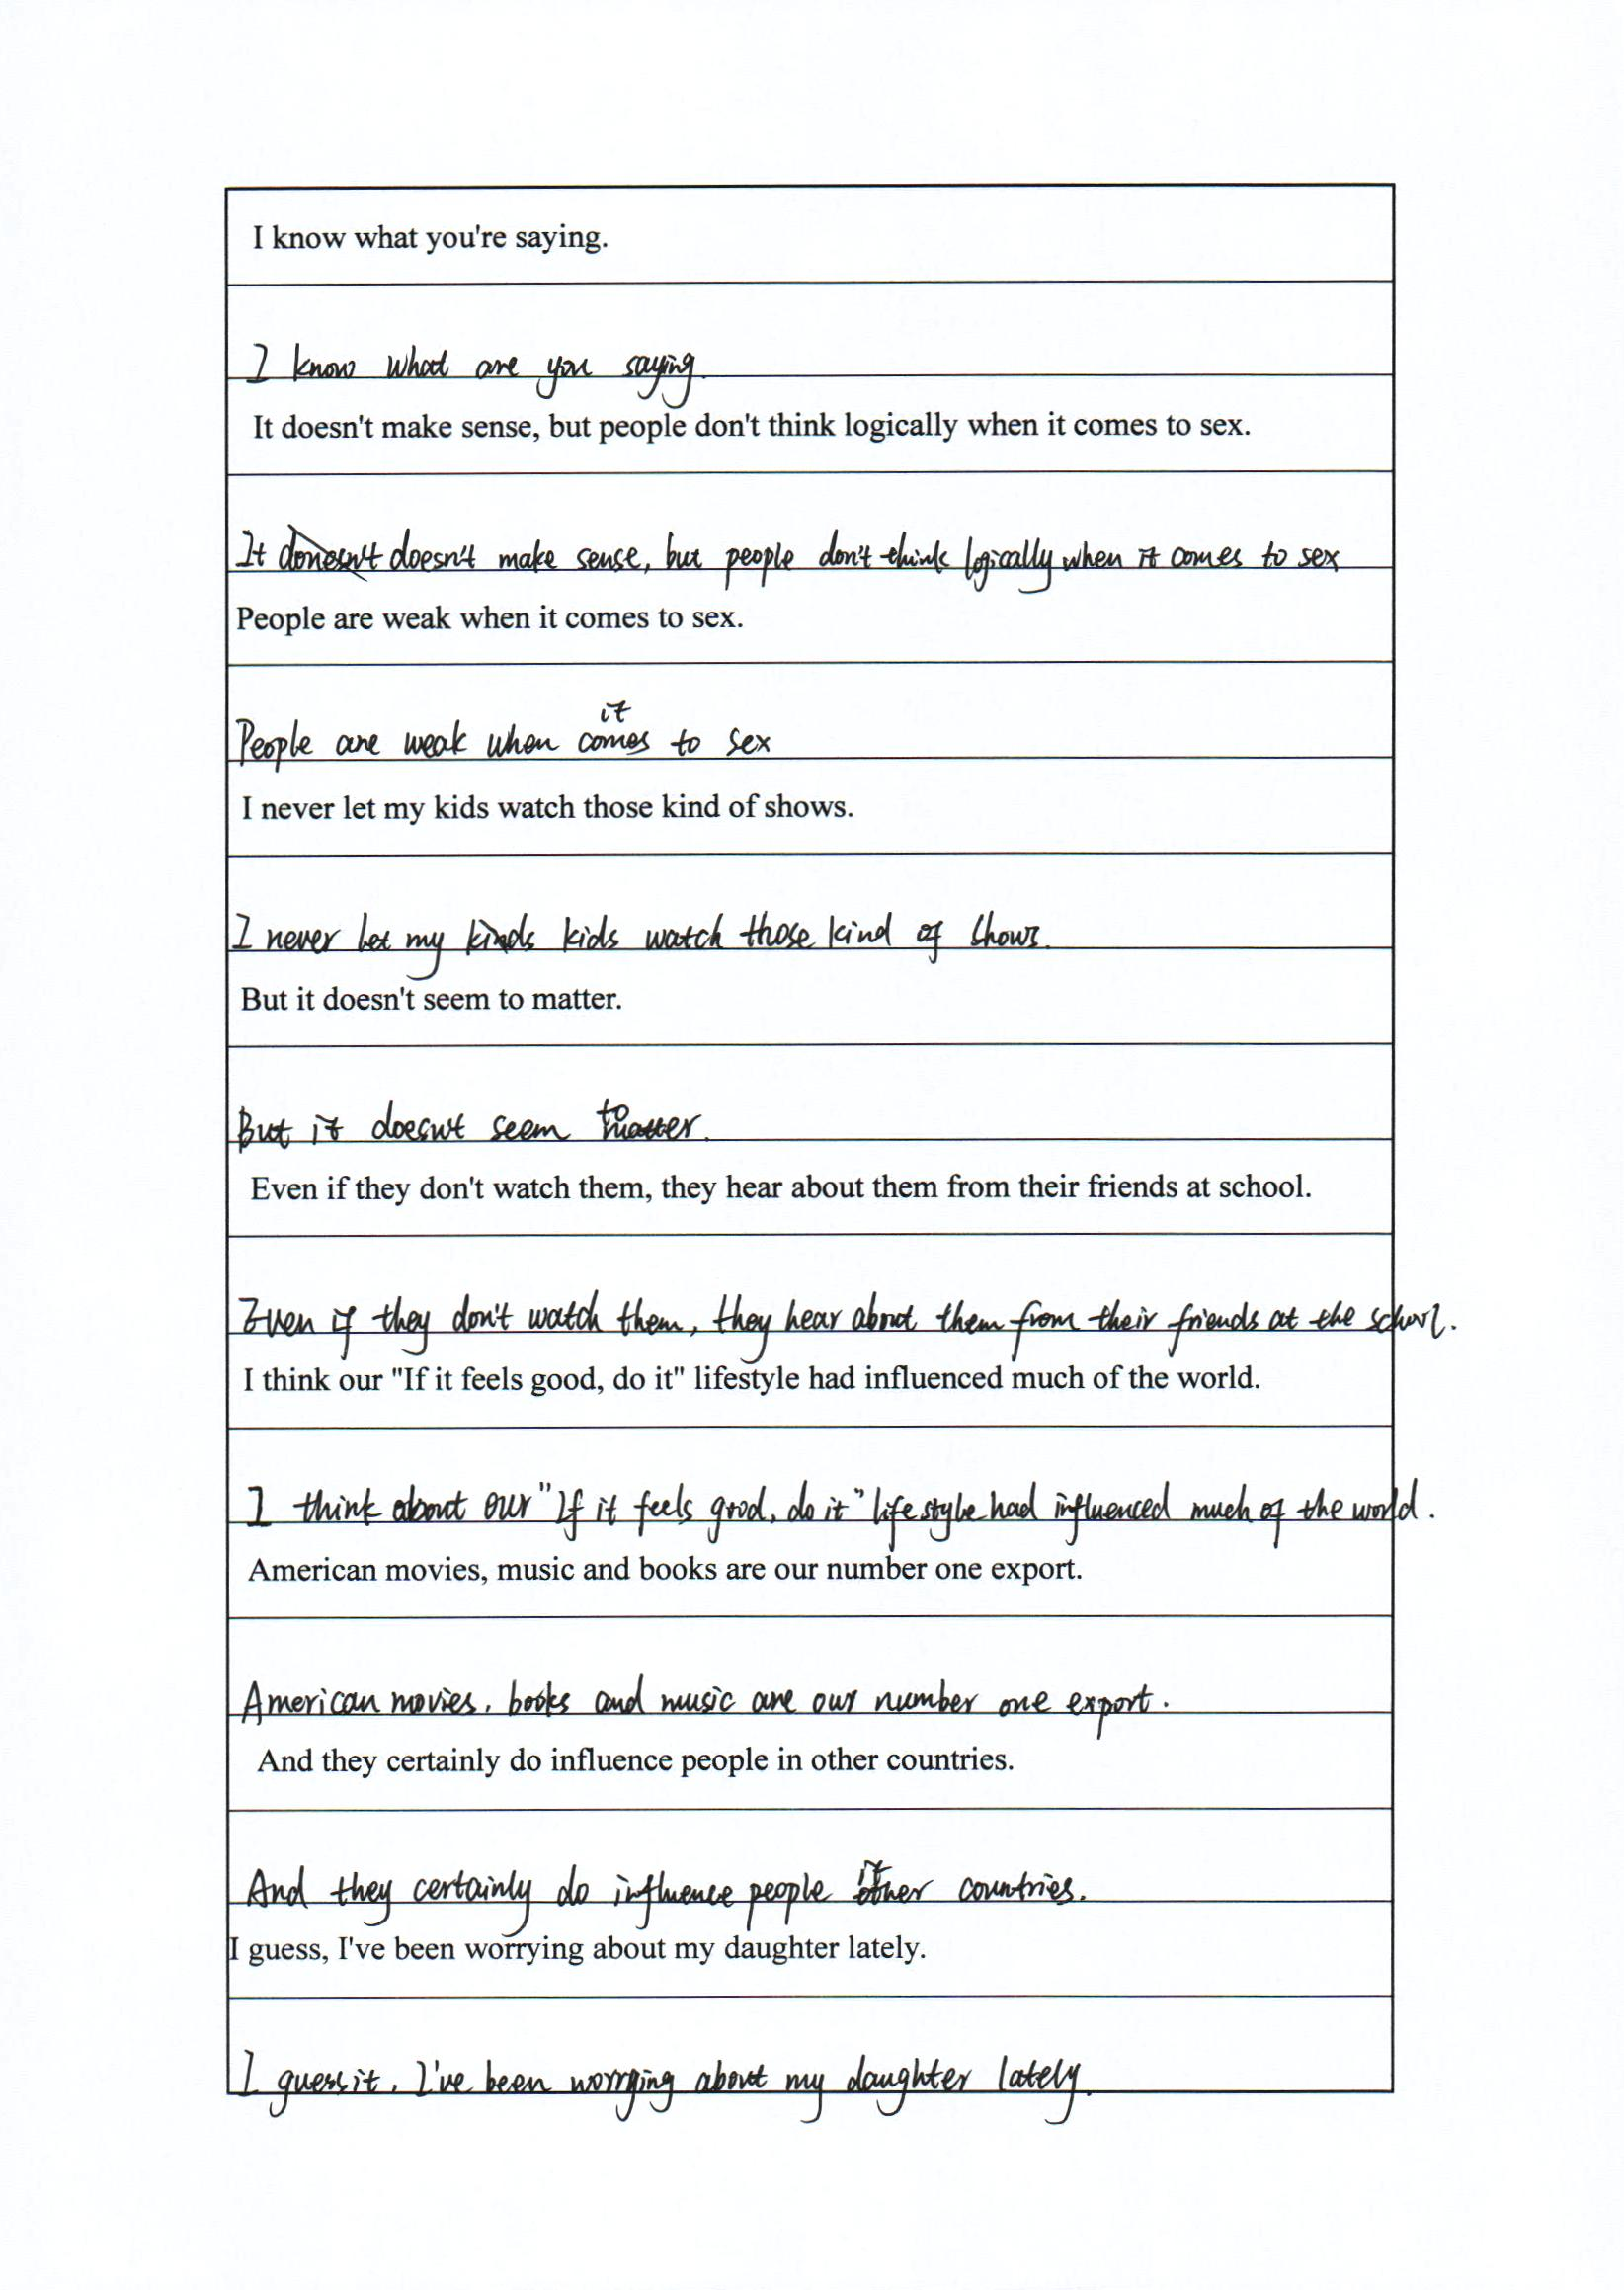 I know what you're saying.
I know what are you saying.
It doesn't make sense, but people don't think logically when it comes to sex.
It doesn't make sense, but people don't think logically when it comes to sex
People are weak when it comes to sex.
People are weak when it comes to sex
I never let my kids watch those kind of shows.
I never let my kinds kids watch those kind of shows.
But it doesn't seem to matter.
But it doesn't seem to matter.
Even if they don't watch them, they hear about them from their friends at school.
Even if they don't watch them, they hear about them from their friends at the school.
I think our "If it feels good, do it" lifestyle had influenced much of the world.
I think about our "If it feels good, do it" lifestyle had influenced much of the world.
American movies, music and books are our number one export.
American movies, books and music are our number one export.
And they certainly do influence people in other countries.
And they certainly do influence people other countries.
I guess, I've been worrying about my daughter lately.
I guess it, I've been worrying about my daughter lately.